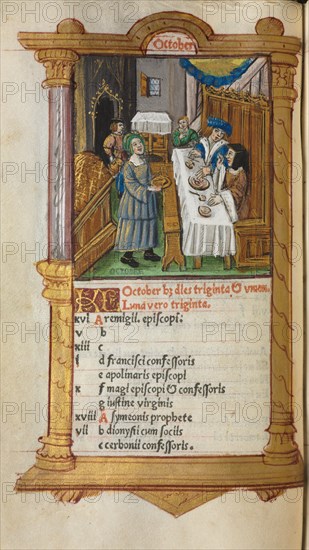 October
OCTOBRE
October hz dies triginta & vnum.
Luna vero triginta.
xvi A remigii. episcopi.
v b
xiii c
ii d francisci confessoris
e apolinaris episcopi
x f magi episcopi & confessoris
g iustine virginis
xviii A symeonis prophete
vii b dionysii cum sociis
c cerbonii confessoris.